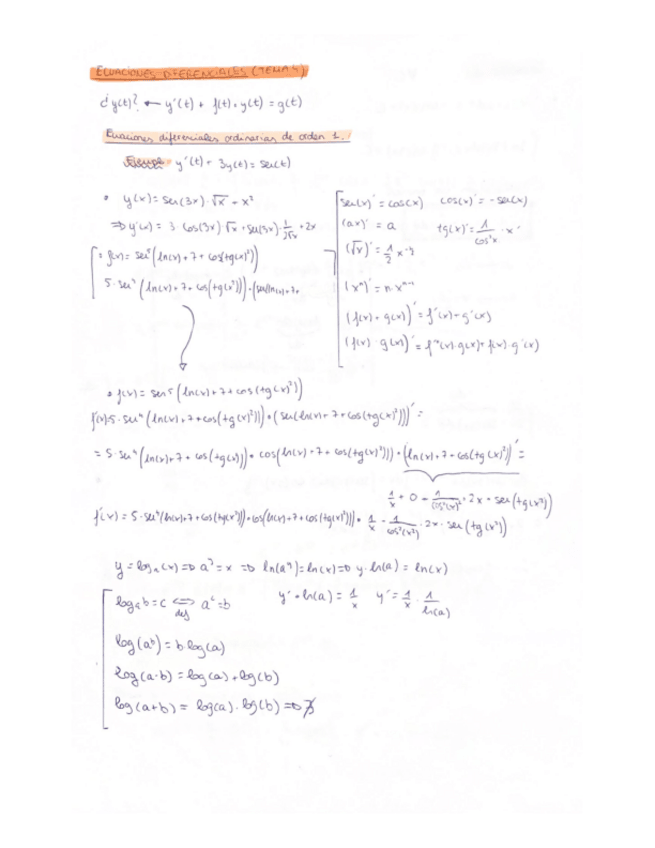 ECUACIONES DIFERENCIALES (TEMA 4)
¿y(t)? ← y'(t) + f(t)·y(t) = g(t)
Ecuaciones diferenciales ordinarias de orden 1.
Ejemplo y'(t) + 3y(t) = sen(t)
• y(x) = sen(3x)·√x + x²
⇒ y'(x) = 3·cos(3x)·√x + sen(3x)·1/(2√x) + 2x
• f(x) = sen⁵(ln(x) + 7 + cos(tg(x)²))
5·sen⁴(ln(x) + 7 + cos(tg(x²)))·(sen(ln(x) + 7 +
sen(x)' = cos(x) cos(x)' = -sen(x)
(ax)' = a tg(x)' = 1/cos²x · x'
(√x)' = 1/2 x^-½
(xⁿ)' = n·xⁿ⁻¹
(f(x) + g(x))' = f'(x) + g'(x)
(f(x)·g(x))' = f'(x)·g(x) + f(x)·g'(x)
• f(x) = sen⁵(ln(x) + 7 + cos(tg(x²))
f'(x) = 5·sen⁴(ln(x) + 7 + cos(tg(x)²)))·(sen(ln(x) + 7 + cos(tg(x)²)))' =
= 5·sen⁴(ln(x) + 7 + cos(tg(x)))·cos(ln(x) + 7 + cos(tg(x)²)))·(ln(x) + 7 + cos(tg(x)²))' =
1/x + 0 - 1/cos²(x)²·2x·sen(tg(x²))
f'(x) = 5·sen⁴(ln(x) + 7 + cos(tg(x²))·cos(ln(x) + 7 + cos(tg(x²)))· 1/x - 1/cos²(x²)·2x·sen(tg(x²))
y = logₐ(x) ⇒ aʸ = x ⇒ ln(aʸ) = ln(x) ⇒ y·ln(a) = ln(x)
logₐb = c ⇔ aᶜ = b y'·ln(a) = 1/x y' = 1/x · 1/ln(a)
def
log(aᵇ) = b·log(a)
log(a·b) = log(a) + log(b)
log(a+b) = log(a)·log(b) ⇒ ∄